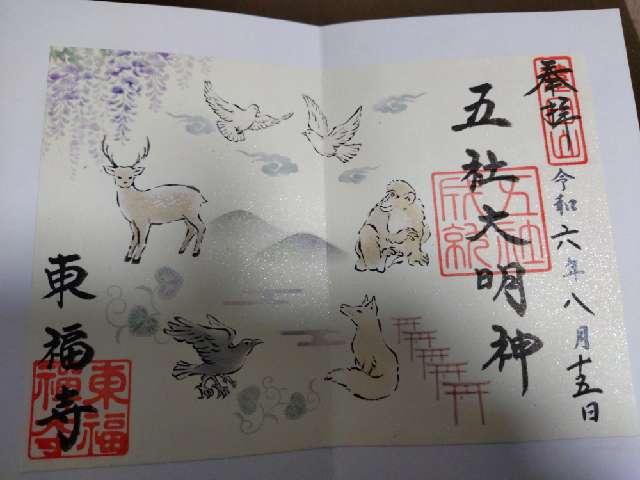 奉拝
令和六年八月十五日
五社大明神
五社
成就
東福寺
東福
福寺